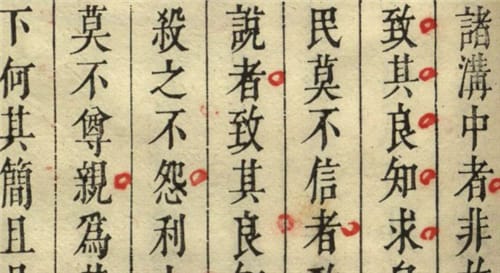 諸溝中者非
致其良知求
民莫不信者
說者致其良
殺之不怨利
莫不尊親為
下何其簡且